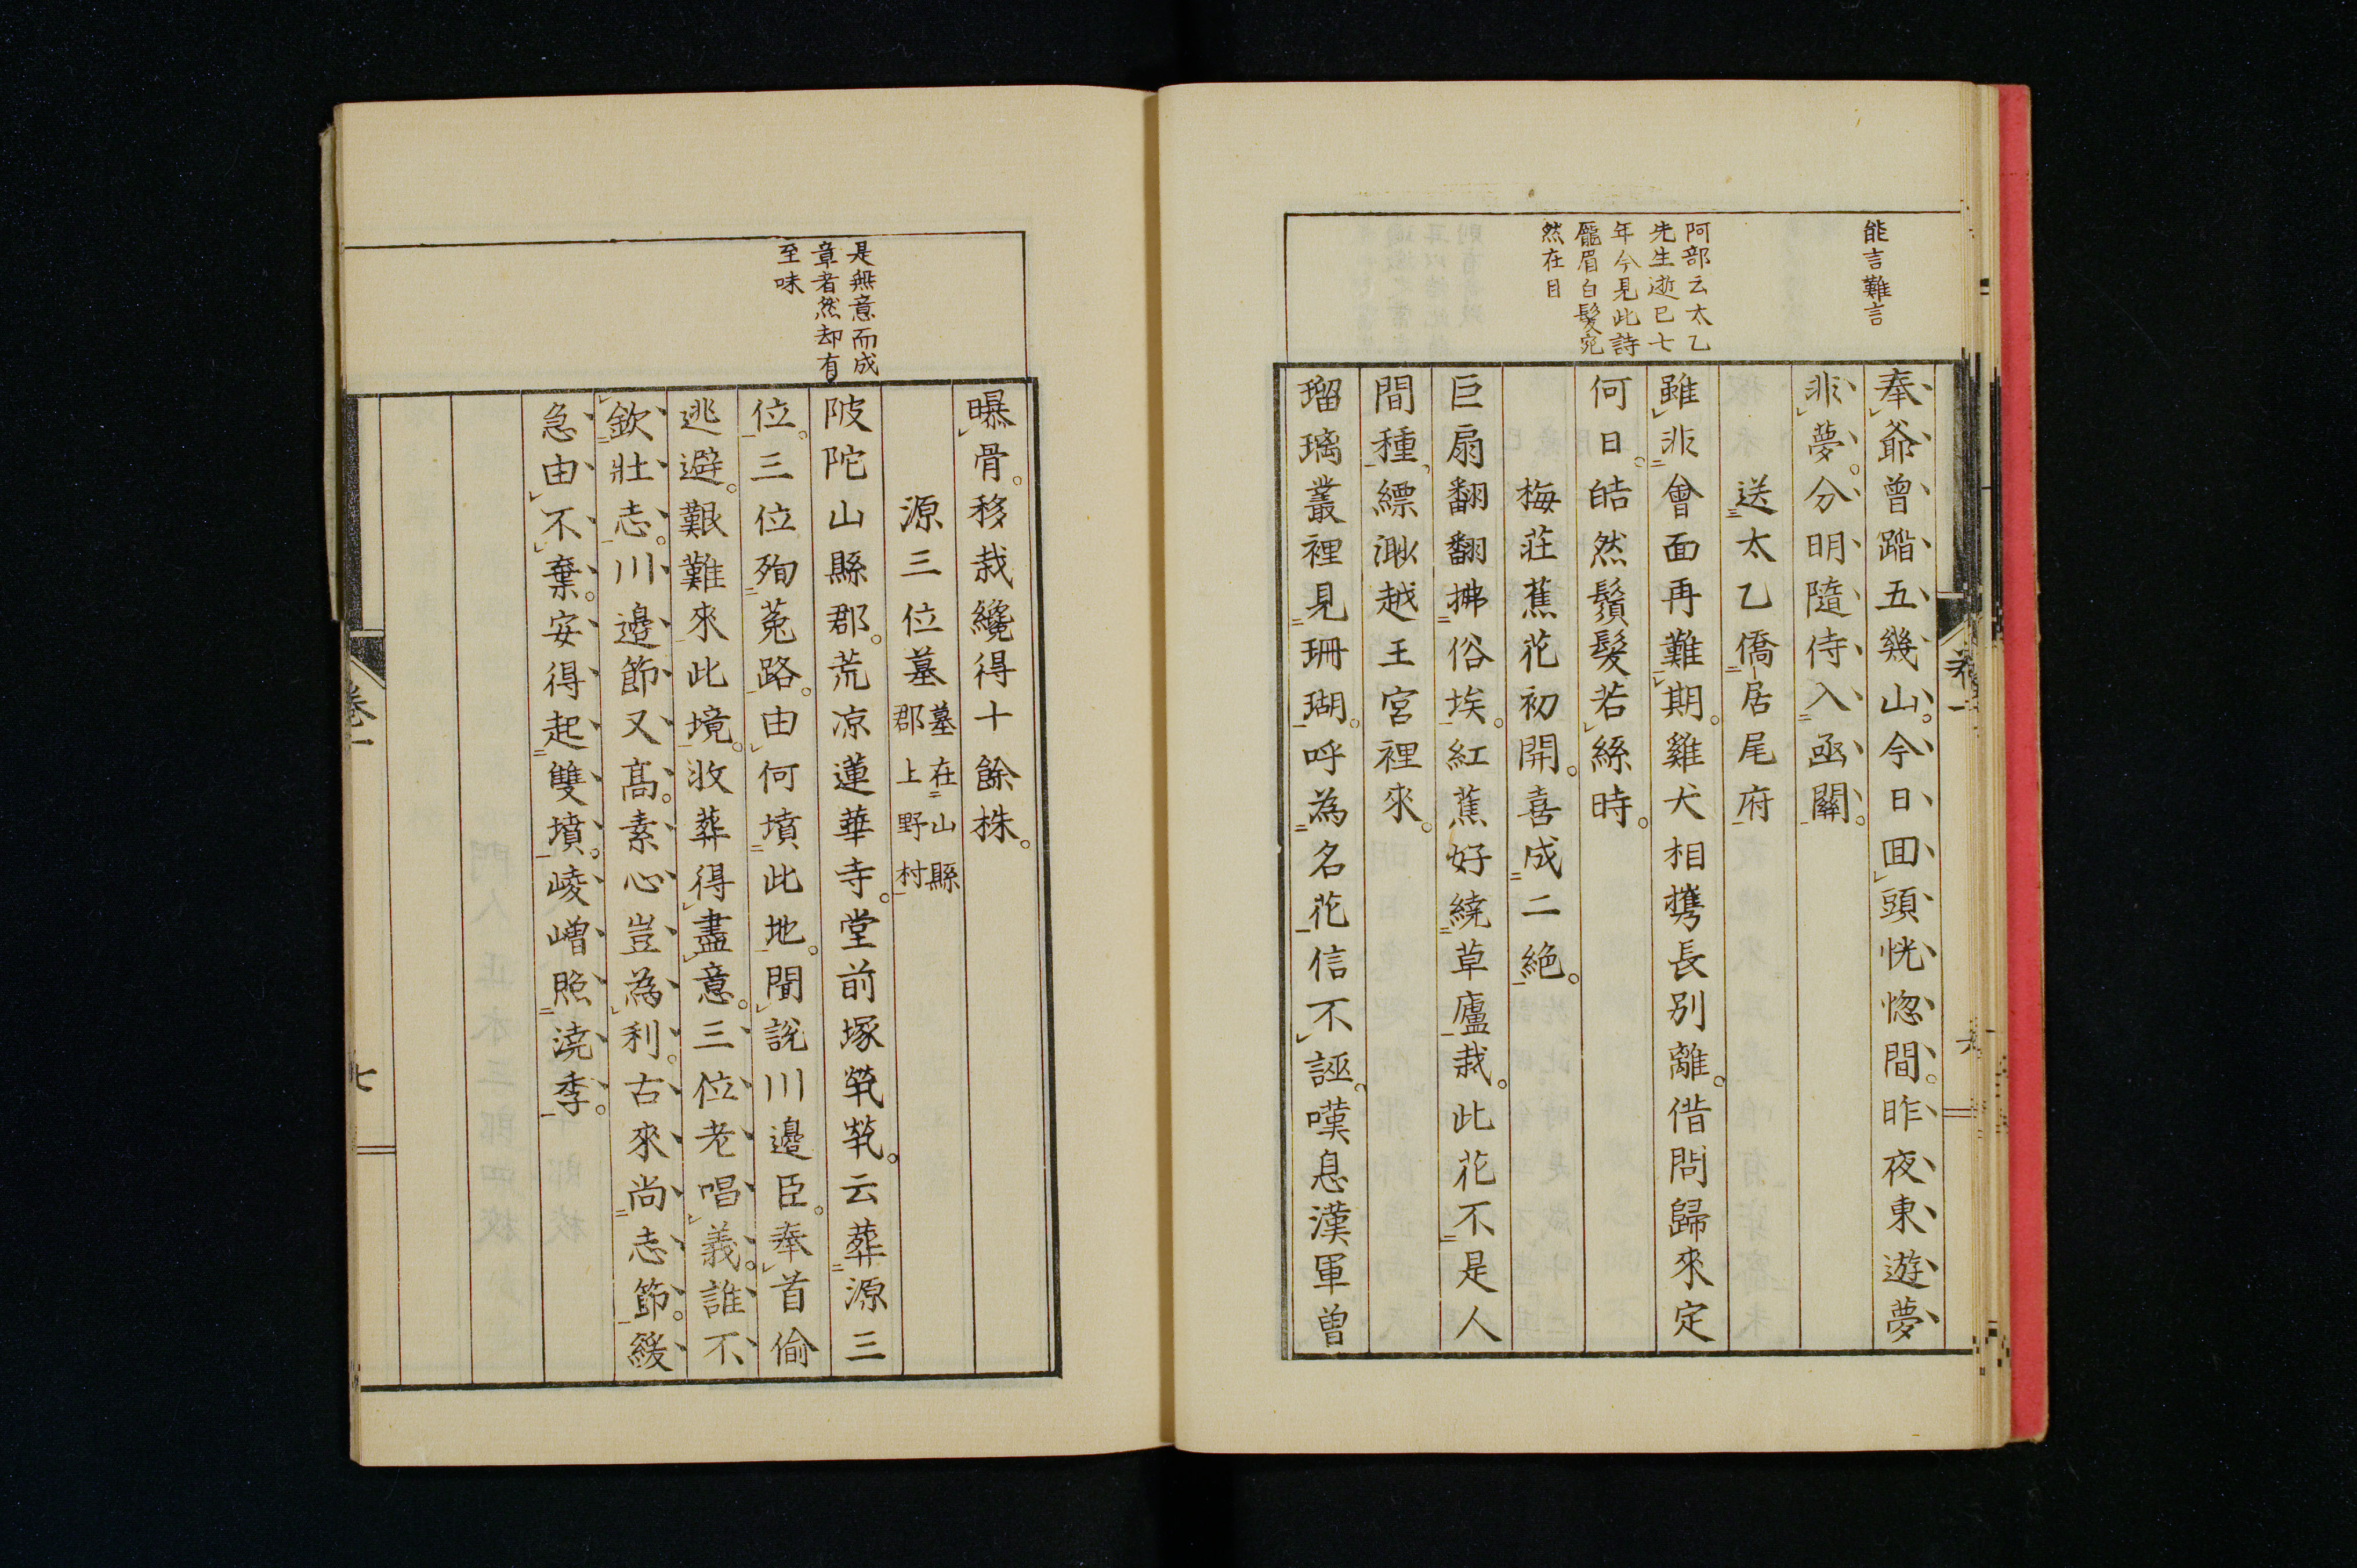 能言難言
阿部云太乙
先生逝已七
年今見此詩
龐眉白髮宛
然在目
奉爺曾踏五幾山。今日囬頭恍惚間。昨夜東遊夢
非夢。分明隨侍入函關。
送太乙僑居尾府
雖非會面再難期。雞犬相携長別離。借問歸來定
何日。皓然鬚髮若絲時。
梅莊蕉花初開。喜成二絕。
巨扇翻翻拂俗埃。紅蕉好繞草廬栽。此花不是人
間種。縹渺越王宮裡來。
瑠璃叢裡見珊瑚。呼為名花信不誣。嘆息漢軍曾
卷一
是無意而成
章者然却有
至味
曝骨。移栽纔得十餘株。
源三位墓
墓在山縣
郡上野村
陂陀山縣郡。荒凉蓮華寺。堂前塚煢煢。云葬源三
位。三位殉菟路。由何墳此地。聞說川邊臣。奉首偷
逃避。艱難來此境。收葬得盡意。三位老唱義。誰不
欽壯志。川邊節又高。素心豈為利。古來尚志節。緩
急由不棄。安得起雙墳。崚嶒照澆季。
卷一
七